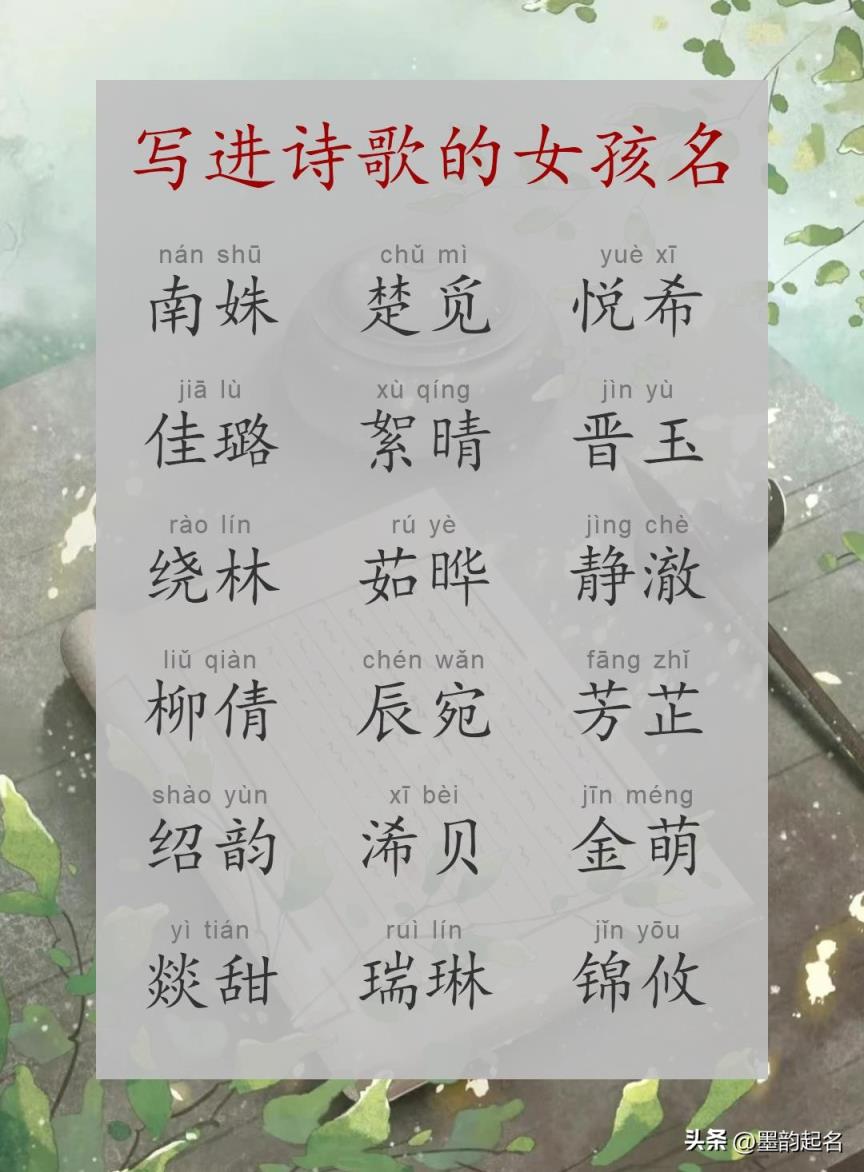 写进诗歌的女孩名
nán shū chǔ mì yuè xī
南姝 楚觅 悦希
jiā lù xù qíng jìn yù
佳璐 絮晴 晋玉
rào lín rú yè jìng chè
绕林 茹晔 静澈
liǔ qiàn chén wǎn fāng zhǐ
柳倩 辰宛 芳芷
shào yùn xī bèi jīn méng
绍韵 浠贝 金萌
yì tián ruì lín jǐn yōu
燚甜 瑞琳 锦攸
头条 @墨韵起名